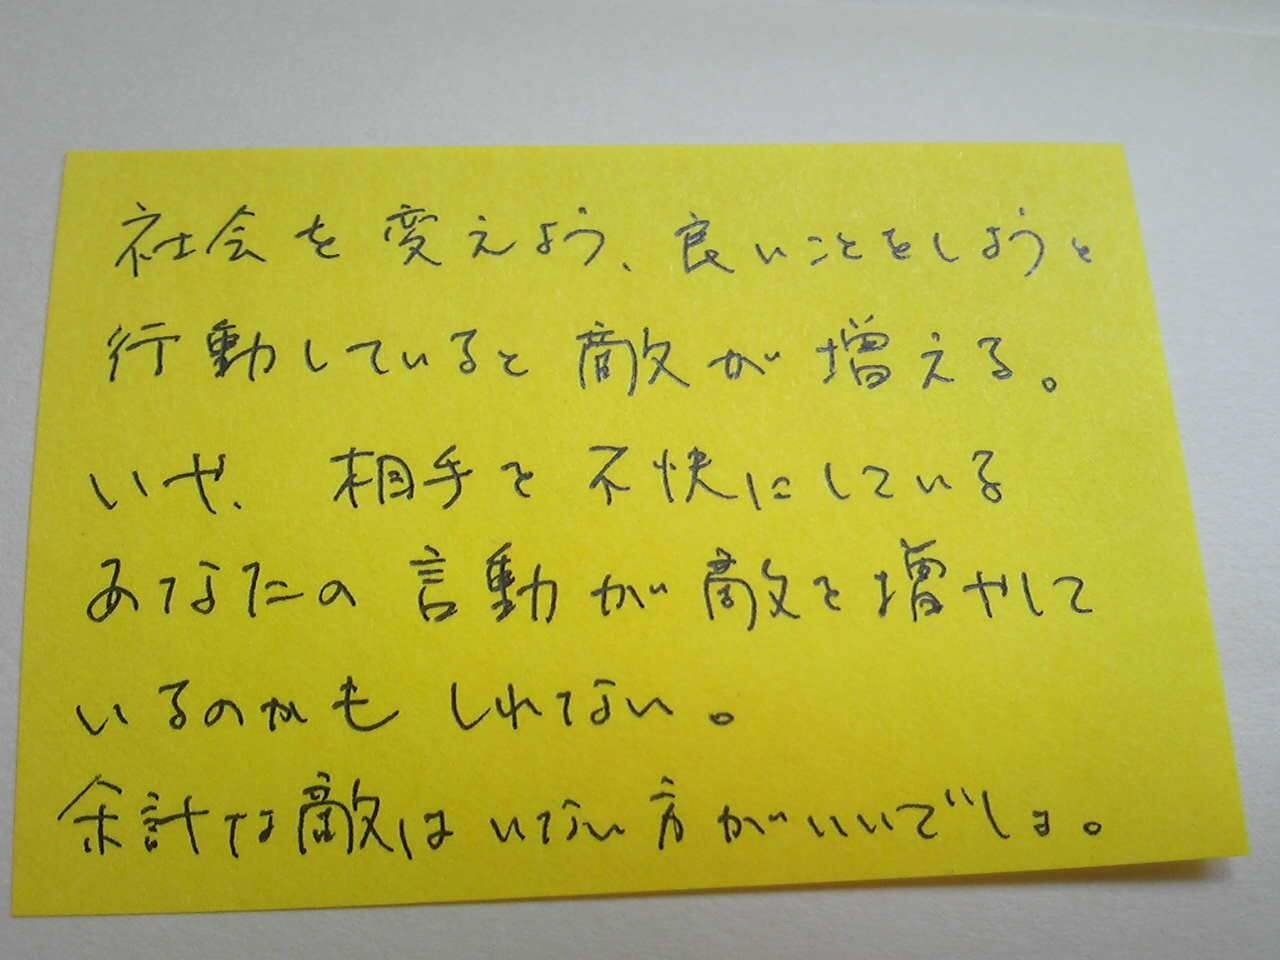 社会を変えよう、良いことをしようと
行動していると敵が増える。
いや、相手を不快にしている
あなたの言動が敵を増やして
いるのかもしれない。
余計な敵はいない方がいいでしょ。